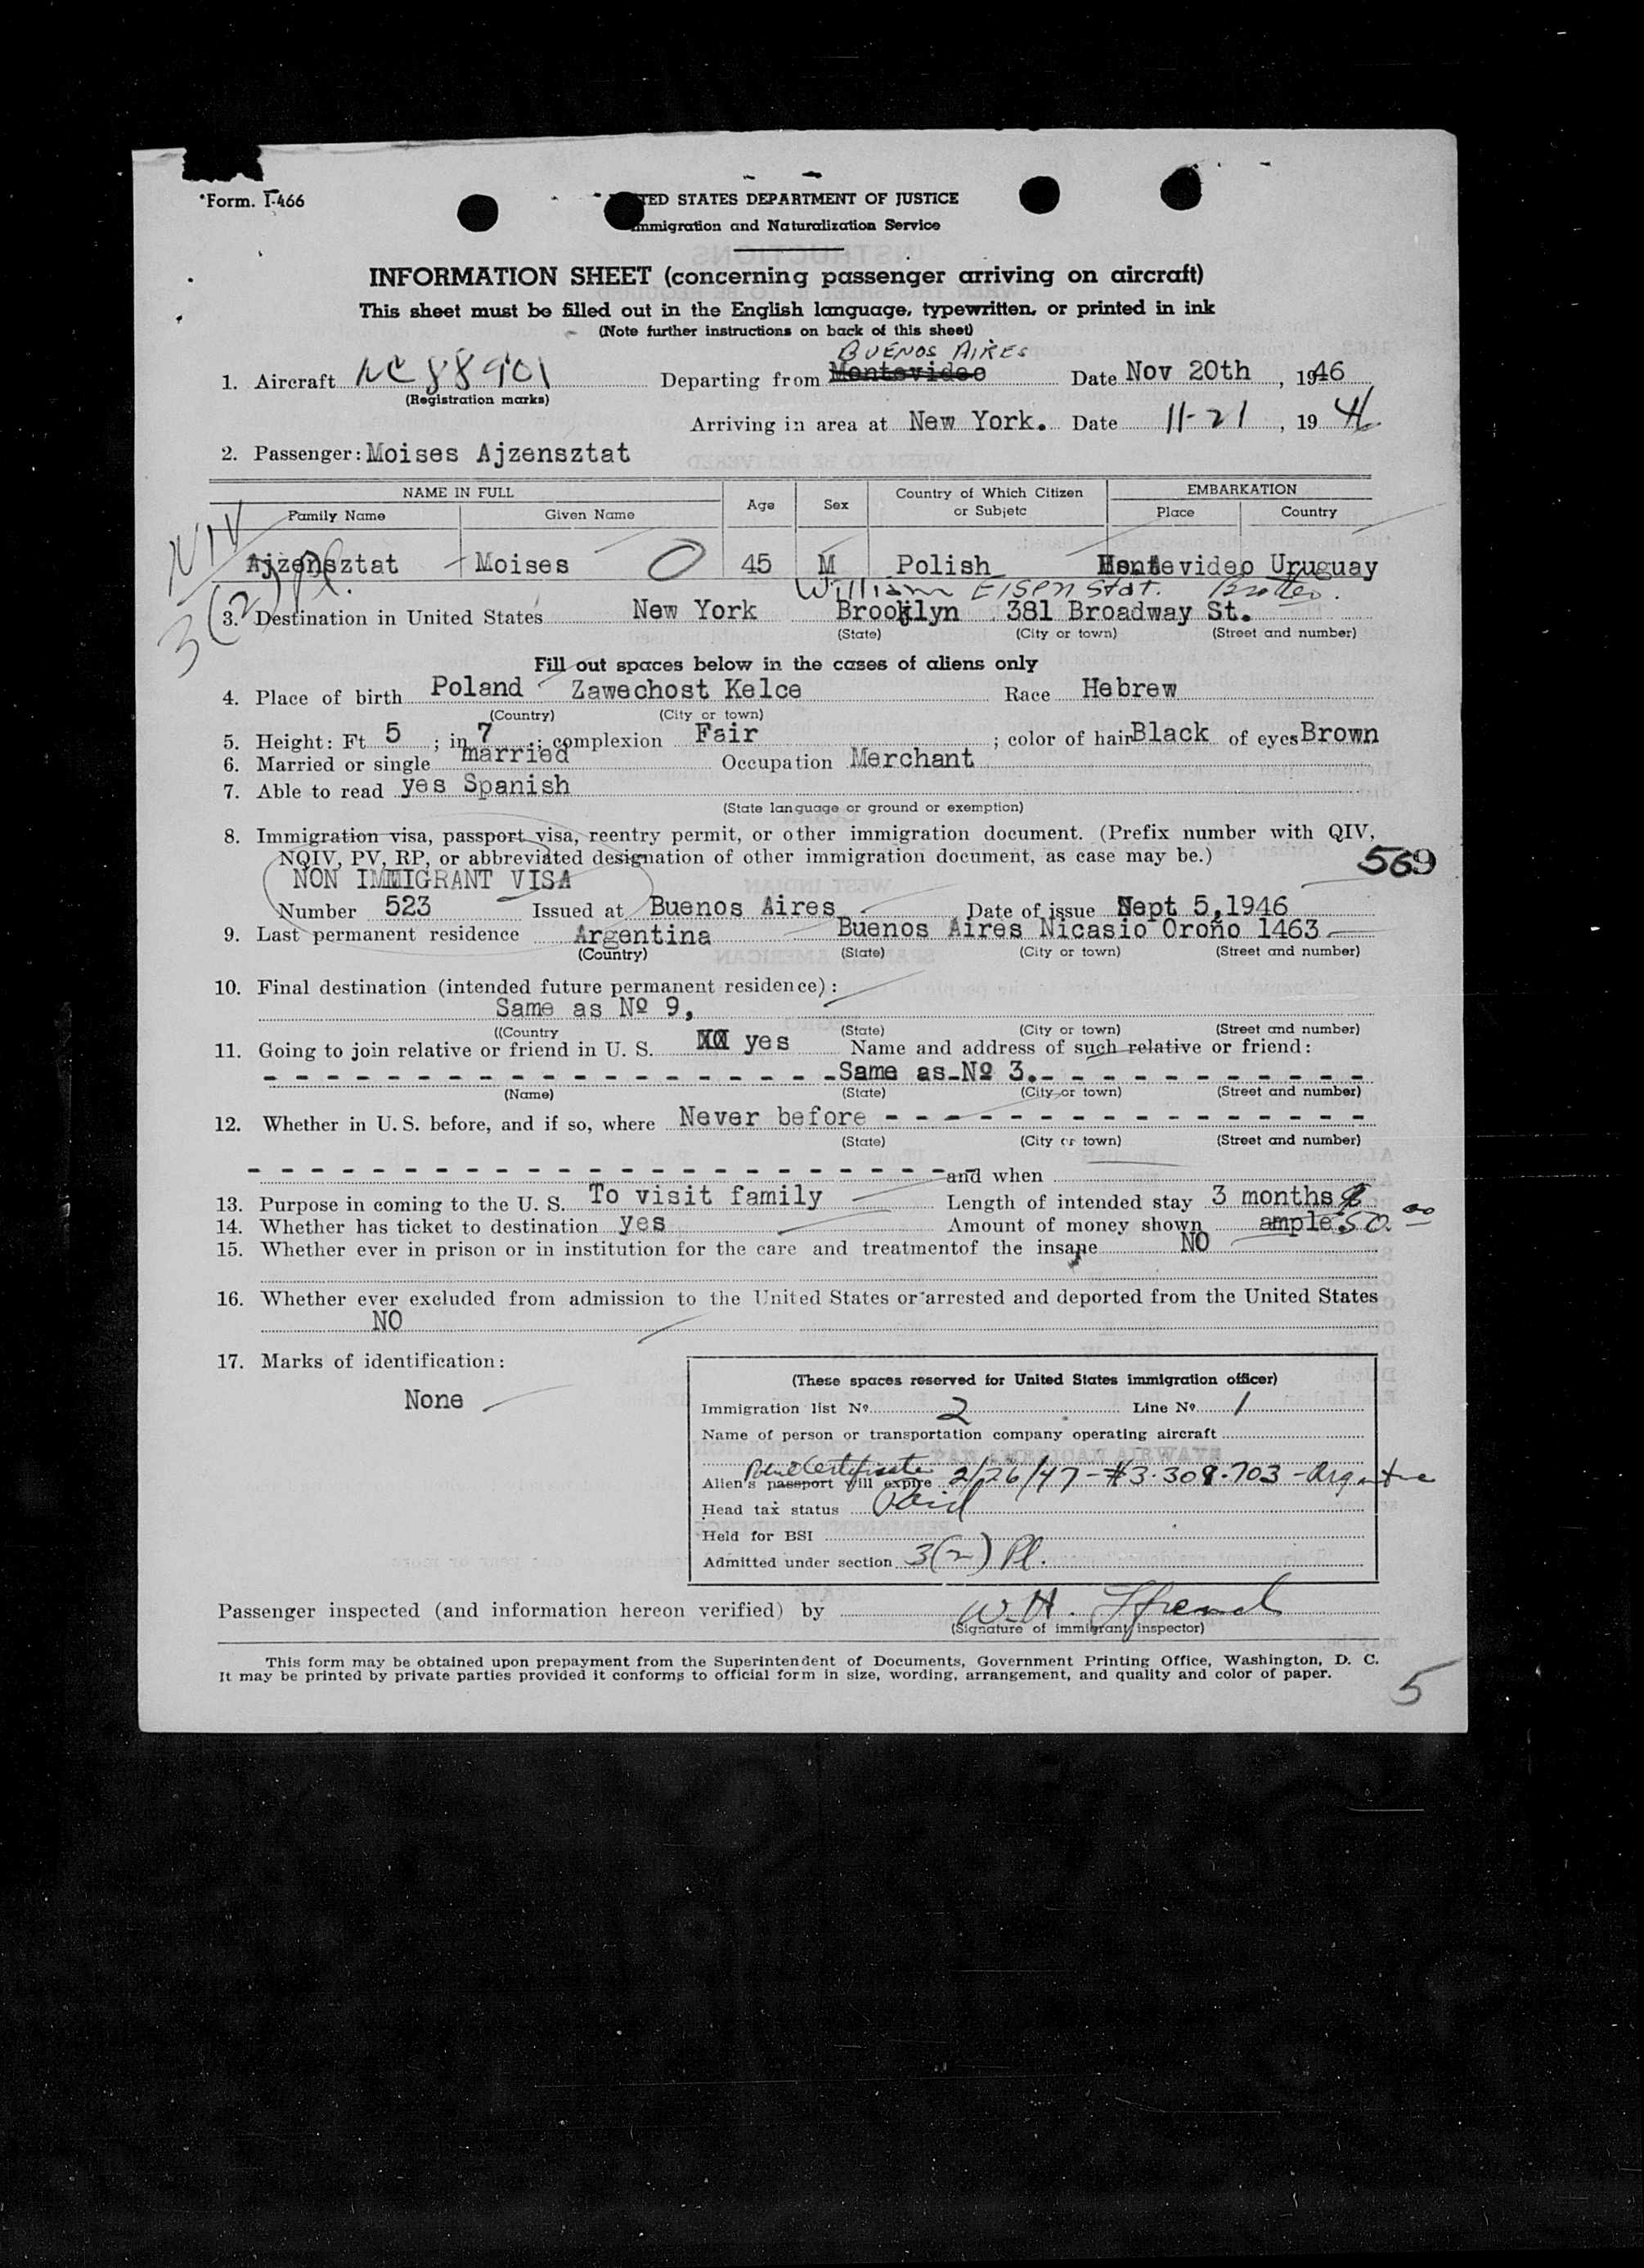 Form. I-466
TED STATES DEPARTMENT OF JUSTICE
mmigration and Naturalization Service
INFORMATION SHEET (concerning passenger arriving on aircraft)
This sheet must be filled out in the English language, typewritten, or printed in ink
(Note further instructions on back of this sheet)
BUENOS AIRES
1. Aircraft NC 88901 Departing from Montevideo Date Nov 20th, 1946
(Registration marks)
Arriving in area at New York. Date 11-21, 1946
2. Passenger: Moises Ajzensztat
NAME IN FULL Age Sex Country of Which Citizen or Subjetc EMBARKATION
Family Name Given Name Place Country
NIV
Ajzensztat Moises 45 M Polish Montevideo Uruguay
3(2) Pl.
William Eisenstat. Brother.
3. Destination in United States New York Brooklyn 381 Broadway St.
(State) (City or town) (Street and number)
Fill out spaces below in the cases of aliens only
4. Place of birth Poland Zawechost Kelce Race Hebrew
(Country) (City or town)
5. Height: Ft 5 ; in 7 ; complexion Fair ; color of hair Black of eyes Brown
6. Married or single married Occupation Merchant
7. Able to read yes Spanish
(State language or ground or exemption)
8. Immigration visa, passport visa, reentry permit, or other immigration document. (Prefix number with QIV,
NQIV, PV, RP, or abbreviated designation of other immigration document, as case may be.)
569
NON IMMIGRANT VISA
Number 523 Issued at Buenos Aires Date of issue Sept 5,1946
9. Last permanent residence Argentina Buenos Aires Nicasio Oroño 1463
(Country) (State) (City or town) (Street and number)
10. Final destination (intended future permanent residence) :
Same as Nº 9,
((Country (State) (City or town) (Street and number)
11. Going to join relative or friend in U. S. yes Name and address of such relative or friend:
Same as Nº 3.
(Name) (State) (City or town) (Street and number)
12. Whether in U. S. before, and if so, where Never before
(State) (City or town) (Street and number)
and when
13. Purpose in coming to the U. S. To visit family Length of intended stay 3 months
14. Whether has ticket to destination yes Amount of money shown ample. 50 00
15. Whether ever in prison or in institution for the care and treatmentof the insane NO
16. Whether ever excluded from admission to the United States or arrested and deported from the United States
NO
17. Marks of identification:
None
(These spaces reserved for United States immigration officer)
Immigration list Nº 2 Line Nº 1
Name of person or transportation company operating aircraft
Police Certificate
Alien's passport will expire 2/26/47 - #3.309.703 - Argentine
Head tax status Paid
Held for BSI
Admitted under section 3(2) Pl.
Passenger inspected (and information hereon verified) by W. H.
(Signature of immigrant inspector)
This form may be obtained upon prepayment from the Superintendent of Documents, Government Printing Office, Washington, D. C.
It may be printed by private parties provided it conforms to official form in size, wording, arrangement, and quality and color of paper.
5